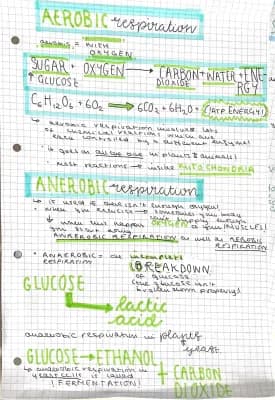 AEROBIC respiration
aerobic = WITH OXYGEN
SUGAR + OXYGEN → CARBON DIOXIDE + WATER + ENERGY
↑ GLUCOSE
C6H12O6 + 6O2 ⇒ 6CO2 + 6H2O + (ATP ENERGY!)
↳ aerobic respiration involves lots
of chemical reactions which are
each controlled by a different enzyme!
* it goes on all the time in plants & animals!
* most reactions → inside MITOCHONDRIA
ANEROBIC respiration
↳ if used if there isn't enough oxygen!
* when you exercise → sometimes you may
not supply enough
OXYGEN to your MUSCLES!
↓ when this happens
you start doing
ANAEROBIC RESPIRATION as well as AEROBIC
RESPIRATION
* ANAEROBIC = an incomplete
RESPIRATION
BREAKDOWN
of glucose
(the glucose isn't
broken down properly)
GLUCOSE
→ lactic
acid
anaerobic respiration in plants
& yeast
GLUCOSE → ETHANOL
+ CARBON
DIOXIDE
↳ anaerobic respiration in
yeast cells is called
(FERMENTATION!)